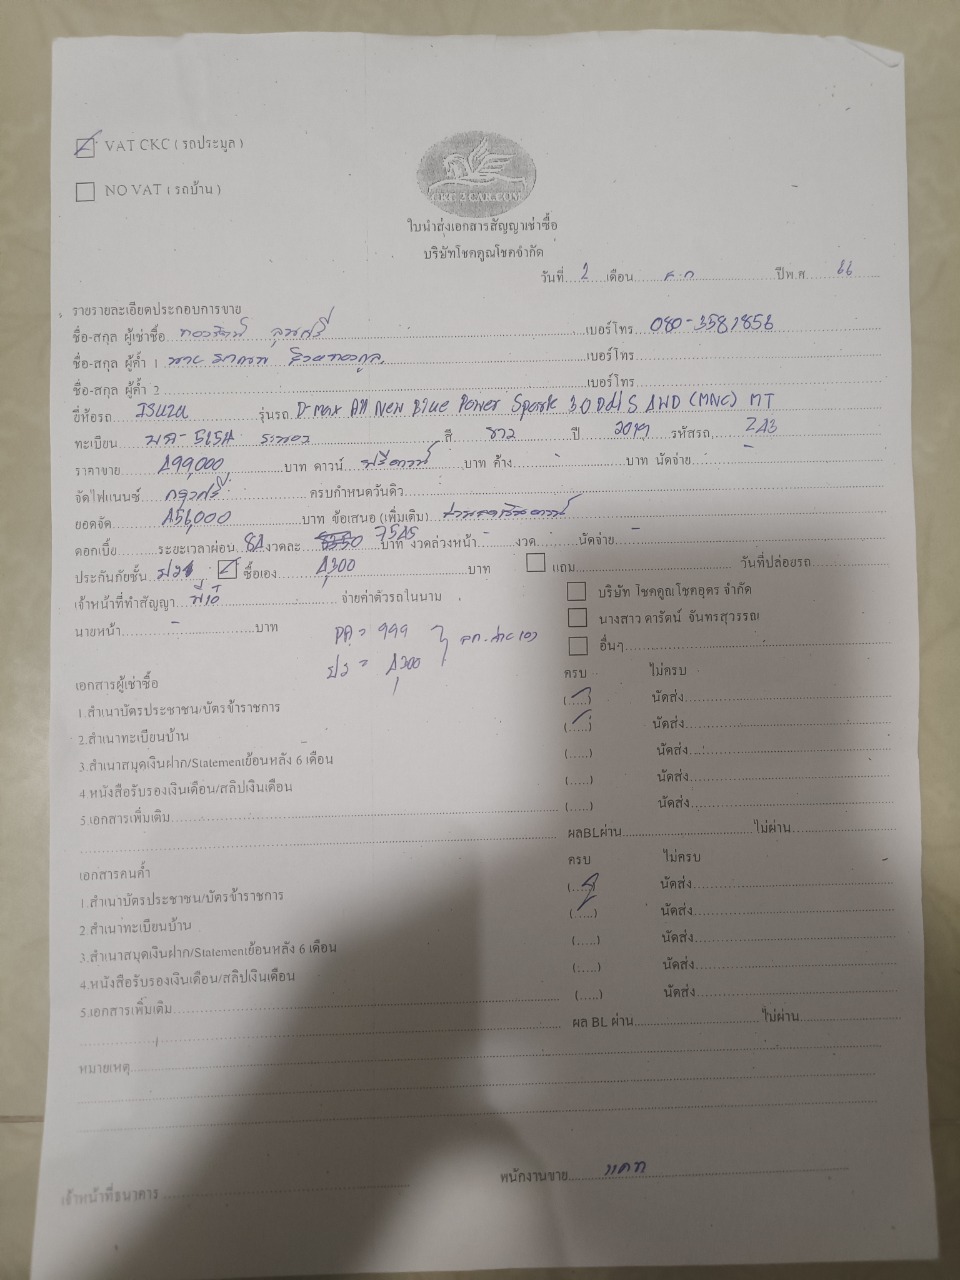 VAT CKC ( รถประมูล )
NO VAT ( รถบ้าน )
ใบนำส่งเอกสารสัญญาเช่าซื้อ
บริษัทโชคคูณโชคจำกัด
วันที่ 2 เดือน ปีพ.ศ. 66
รายรายละเอียดประกอบการขาย
ชื่อ-สกุล ผู้เช่าซื้อ เบอร์โทร
ชื่อ-สกุล ผู้ค้ำ 1 นาย เบอร์โทร
ชื่อ-สกุล ผู้ค้ำ 2 เบอร์โทร
ยี่ห้อรถ ISUZU รุ่นรถ D-max All New Blue Power Spark 3.0 Ddi S 4WD (MNC) MT
ทะเบียน ระยอง สี ขาว ปี 2019 รหัสรถ 243
ราคาขาย 499,000 บาท ดาวน์ ฟรีดาวน์ บาท ค้าง - บาท นัดจ่าย -
จัดไฟแนนซ์ กรุงศรี ครบกำหนดวันดิว
ยอดจัด 456,000 บาท ข้อเสนอ (เพิ่มเติม)
ดอกเบี้ย ระยะเวลาผ่อน 84 งวดละ 7545 บาท งวดล่วงหน้า - งวด นัดจ่าย -
ประกันภัยชั้น ซื้อเอง 4,300 บาท แถม วันที่ปล่อยรถ
เจ้าหน้าที่ทำสัญญา จ่ายค่าตัวรถในนาม บริษัท โชคคูณโชคอุดร จำกัด
นายหน้า - บาท นางสาว ดารัตน์ จันทรสุวรรณ
PA = 999
อื่นๆ
= 4,300
เอกสารผู้เช่าซื้อ ครบ ไม่ครบ
1.สำเนาบัตรประชาชน/บัตรข้าราชการ (.....) นัดส่ง
2.สำเนาทะเบียนบ้าน (.....) นัดส่ง
3.สำเนาสมุดเงินฝาก/Statementย้อนหลัง 6 เดือน (.....) นัดส่ง
4.หนังสือรับรองเงินเดือน/สลิปเงินเดือน (.....) นัดส่ง
5.เอกสารเพิ่มเติม (.....) นัดส่ง
ผลBLผ่าน ไม่ผ่าน
เอกสารคนค้ำ ครบ ไม่ครบ
1.สำเนาบัตรประชาชน/บัตรข้าราชการ (.....) นัดส่ง
2.สำเนาทะเบียนบ้าน (.....) นัดส่ง
3.สำเนาสมุดเงินฝาก/Statementย้อนหลัง 6 เดือน (.....) นัดส่ง
4.หนังสือรับรองเงินเดือน/สลิปเงินเดือน (.....) นัดส่ง
5.เอกสารเพิ่มเติม (.....) นัดส่ง
ผล BL ผ่าน ไม่ผ่าน
หมายเหตุ
เจ้าหน้าที่ธนาคาร พนักงานขาย